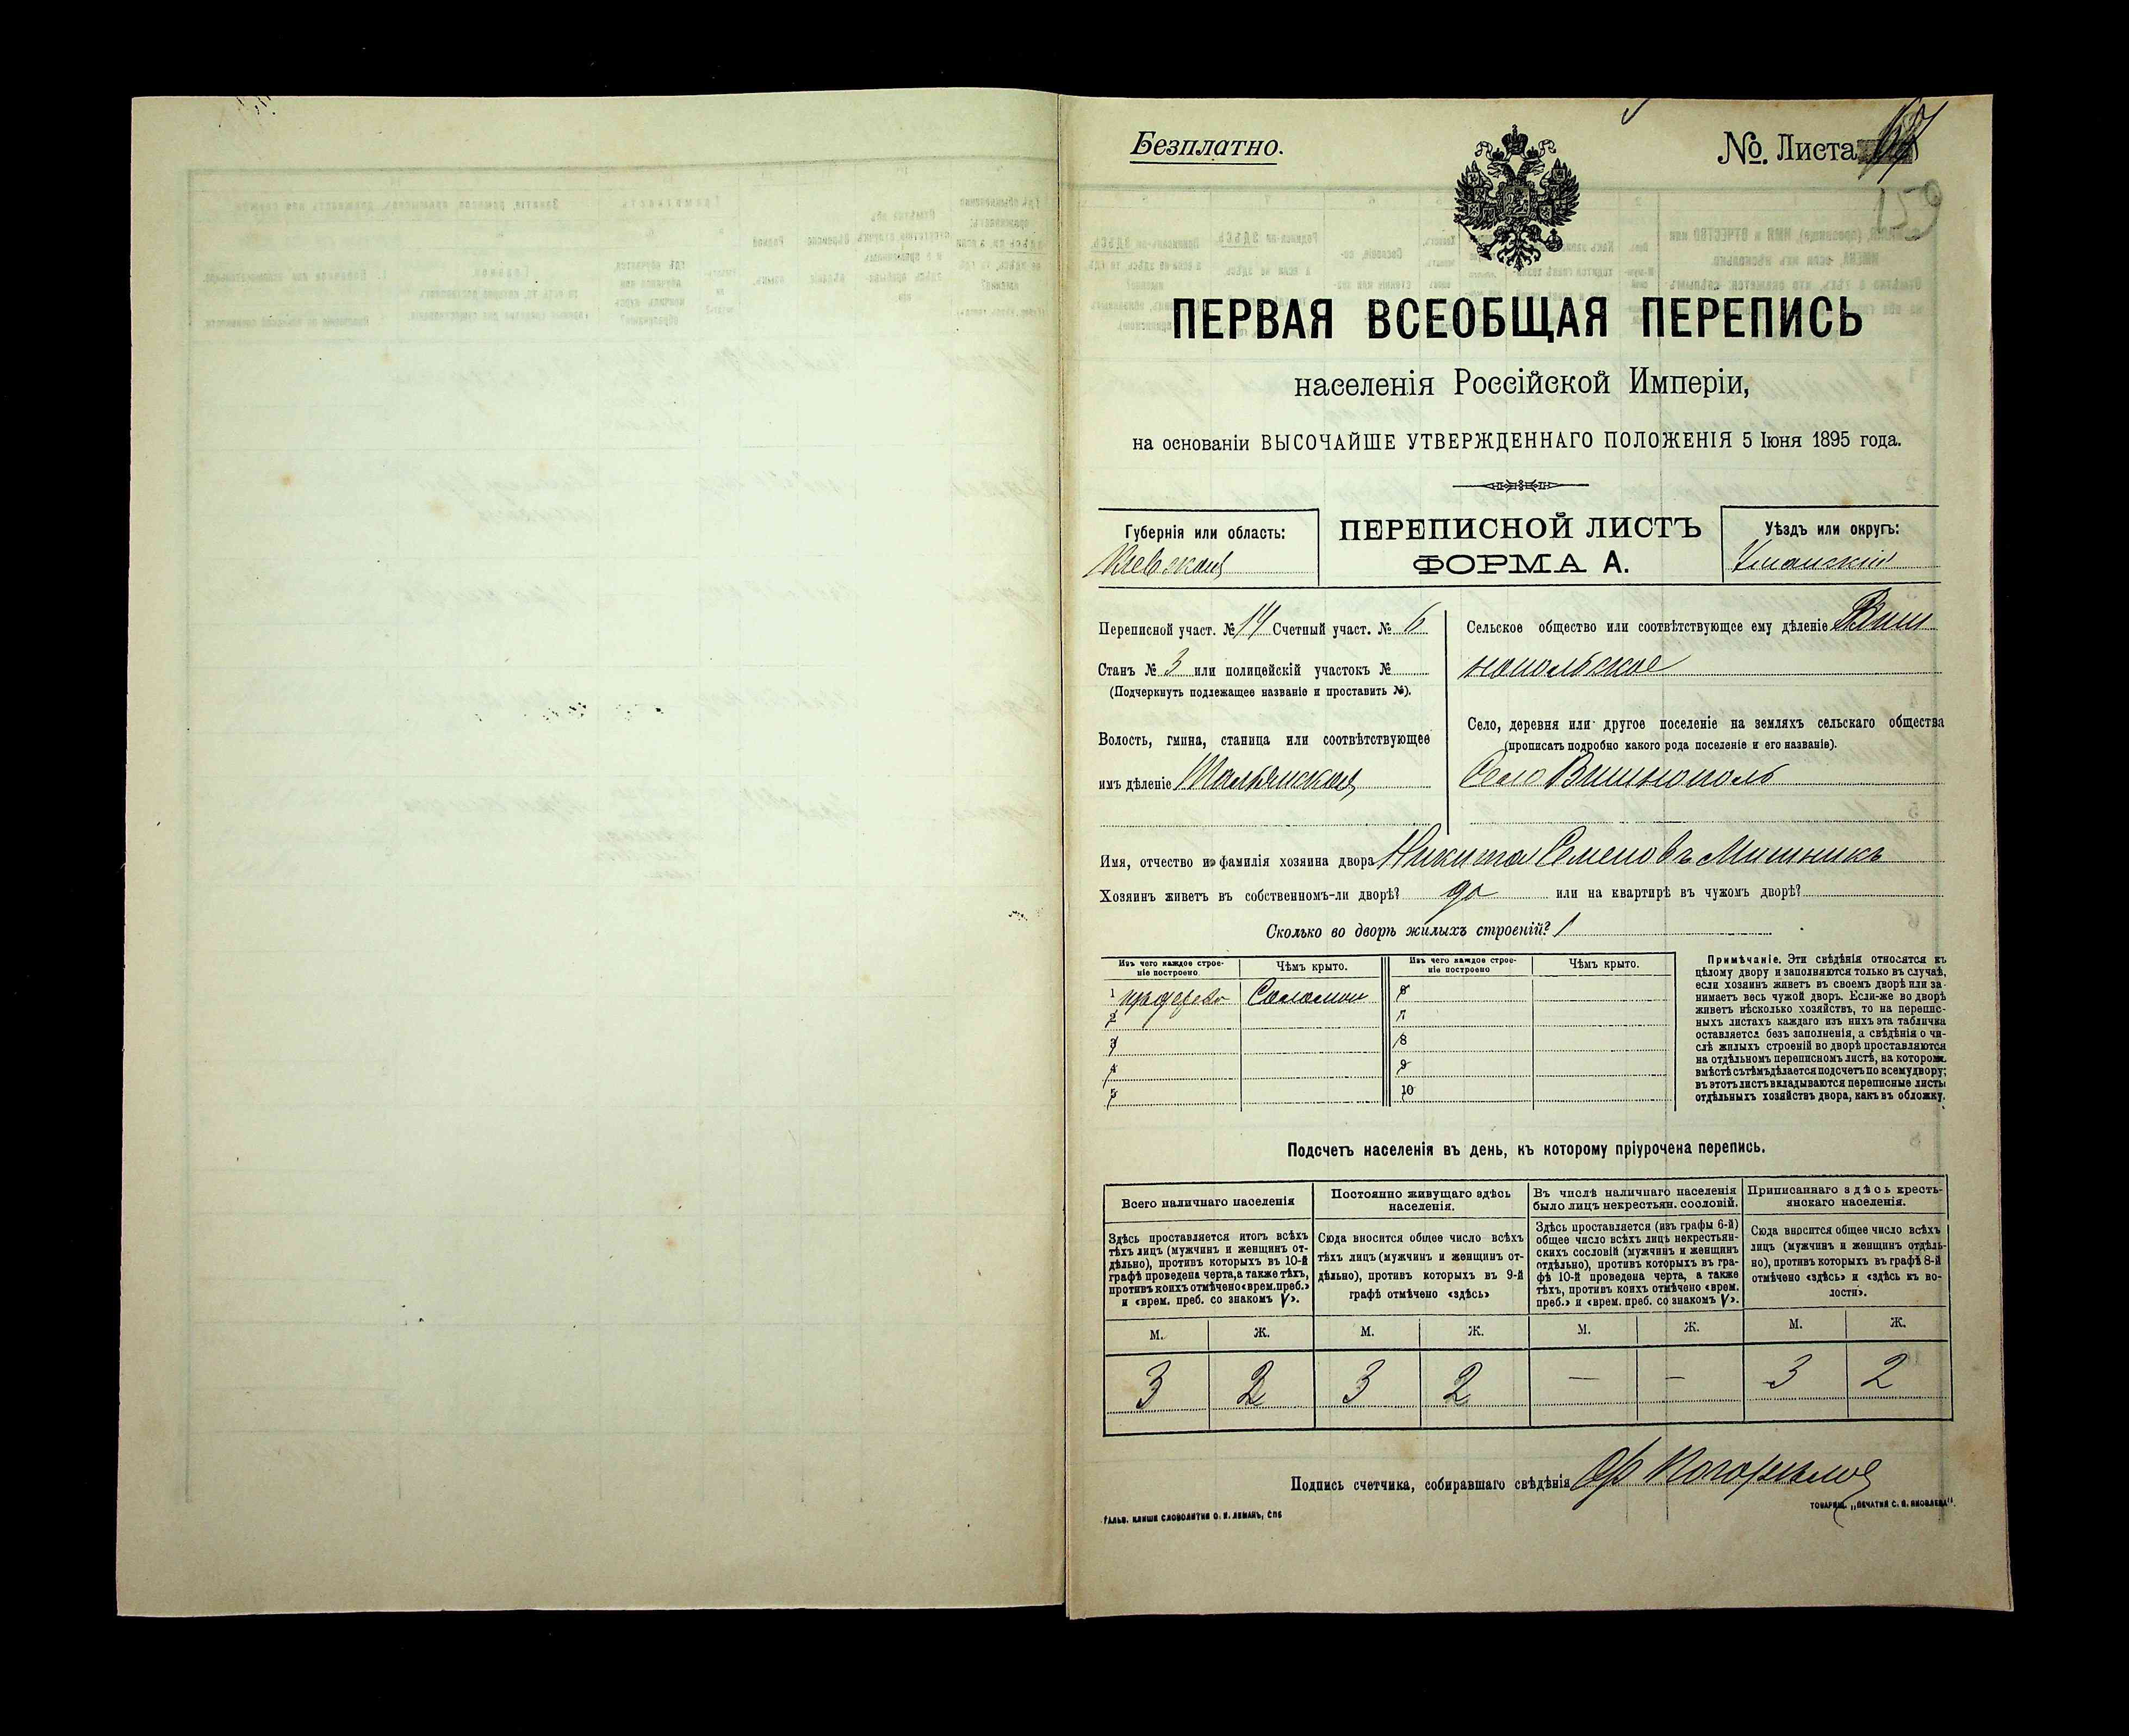 Безплатно.
№. Листа
159
ПЕРВАЯ ВСЕОБЩАЯ ПЕРЕПИСЬ
населенія Россійской Имперіи,
на основаніи ВЫСОЧАЙШЕ УТВЕРЖДЕННАГО ПОЛОЖЕНІЯ 5 Іюня 1895 года.
Губернія или область:
Кіевская
ПЕРЕПИСНОЙ ЛИСТЪ
ФОРМА А.
Уѣздъ или округъ:
Уманскій
Переписной участ. № 14 Счетный участ. № 6
Станъ № 3 или полицейскій участокъ №
(Подчеркнуть подлежащее названіе и проставить №).
Волость, гмина, станица или соотвѣтствующее
имъ дѣленіе
Сельское общество или соотвѣтствующее ему дѣленіе Виш
нопольское
Село, деревня или другое поселеніе на земляхъ сельскаго общества
(прописать подробно какого рода поселеніе и его названіе).
Село Вишнополь
Имя, отчество и фамилія хозяина двора Никита Семеновъ Мишникъ
Хозяинъ живетъ въ собственномъ-ли дворѣ? да или на квартирѣ въ чужомъ дворѣ?
Сколько во дворѣ жилыхъ строеній? 1
Изъ чего каждое строе-
ніе построено
Чѣмъ крыто.
Изъ чего каждое строе-
ніе построено
Чѣмъ крыто.
1 Соломой 6
2 7
3 8
4 9
5 10
Примѣчаніе. Эти свѣдѣнія относятся къ
цѣлому двору и заполняются только въ случаѣ,
если хозяинъ живетъ въ своемъ дворѣ или за-
нимаетъ весь чужой дворъ. Если-же во дворѣ
живетъ нѣсколько хозяйствъ, то на перепис-
ныхъ листахъ каждаго изъ нихъ эта табличка
оставляется безъ заполненія, а свѣдѣнія о чи-
слѣ жилыхъ строеній во дворѣ проставляются
на отдѣльномъ переписномъ листѣ, на которомъ
вмѣстѣ съ тѣмъ дѣлается подсчетъ по всему двору;
въ этотъ листъ вкладываются переписные листы
отдѣльныхъ хозяйствъ двора, какъ въ обложку.
Подсчетъ населенія въ день, къ которому пріурочена перепись.
Всего наличнаго населенія
Здѣсь проставляется итогъ всѣхъ
тѣхъ лицъ (мужчинъ и женщинъ от-
дѣльно), противъ которыхъ въ 10-й
графѣ проведена черта, а также тѣхъ,
противъ коихъ отмѣчено «врем. преб.»
и «врем. преб. со знакомъ V».
Постоянно живущаго здѣсь
населенія.
Сюда вносится общее число всѣхъ
тѣхъ лицъ (мужчинъ и женщинъ от-
дѣльно), противъ которыхъ въ 9-й
графѣ отмѣчено «здѣсь»
Въ числѣ наличнаго населенія
было лицъ некрестьян. сословій.
Здѣсь проставляется (изъ графы 6-й)
общее число всѣхъ лицъ некрестьян-
скихъ сословій (мужчинъ и женщинъ
отдѣльно), противъ которыхъ въ гра-
фѣ 10-й проведена черта, а также
тѣхъ, противъ коихъ отмѣчено «врем.
преб.» и «врем. преб. со знакомъ V».
Приписаннаго здѣсь кресть-
янскаго населенія.
Сюда вносится общее число всѣхъ
лицъ (мужчинъ и женщинъ отдѣль-
но), противъ которыхъ въ графѣ 8-й
отмѣчено «здѣсь» и «здѣсь въ во-
лости».
М. Ж. М. Ж. М. Ж. М. Ж.
3 2 3 2 — — 3 2
Подпись счетчика, собиравшаго свѣдѣнія
ГАЛЬВ. КЛИШЕ СЛОВОЛИТНИ О. И. ЛЕМАНЪ, СПБ
ТОВАРИЩ. „ПЕЧАТНЯ С. П. ЯКОВЛЕВА".